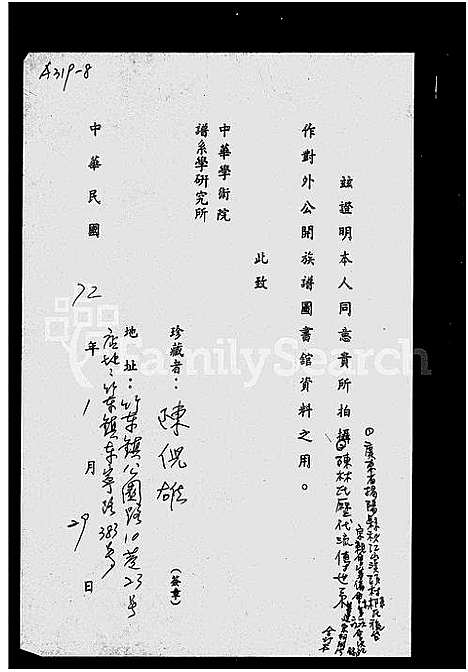 A319-8
①廣東省揭陽縣
茲證明本人同意貴所拍攝②陳林氏歷代流傳世系
作對外公開族譜圖書館資料之用。
此致
中華學術院
譜系學研究所
珍藏者：陳倪雄（簽章）
地址：竹東鎮公園路10巷23号
店址：竹東鎮東寧路383号
中華民國72年1月29日
FamilySearch